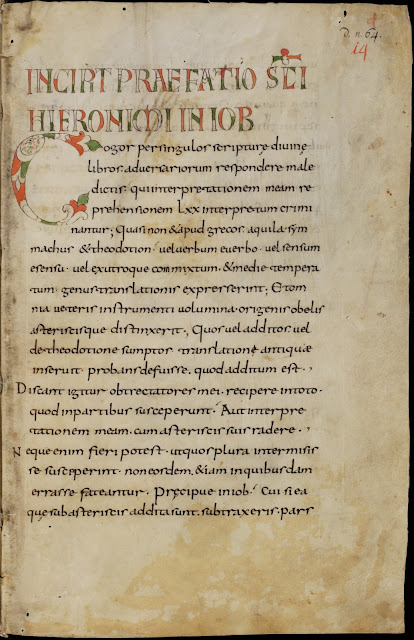 D. n. 64.
14
INCIPIT PRAEFATIO SCI
HIERONIMI IN IOB
Cogor per singulos scripturę diuinę
libros aduersariorum respondere male
dictis. qui interpretationem meam re
prehensionem Lxx interpretum crimi
nantur; Quasi non & apud grecos aquila sym
machus & theodotion. uel uerbum e uerbo. uel sensum
e sensu. uel ex utroque commixtum. & medie tempera
tum. genus translationis expresserint; Et om
nia ueteris instrumenti uolumina. origenis obelis
asteriscisque distinxerit; Quos uel additos. uel
de theodotione sumptos translatione antiquae
inseruit. probans defuisse. quod additum est.,
Discant igitur obtrectatores mei. recipere in toto.
quod in partibus susceperunt. Aut interpre
tationem meam. cum asteriscis suis radere.,
Neque enim fieri potest. ut quos plura intermisis
se susceperint. non eosdem. &iam in quibusdam
errasse fateantur. Pręcipue in iob. Cui si ea
quę sub asteriscis addita sunt. subtraxeris. pars